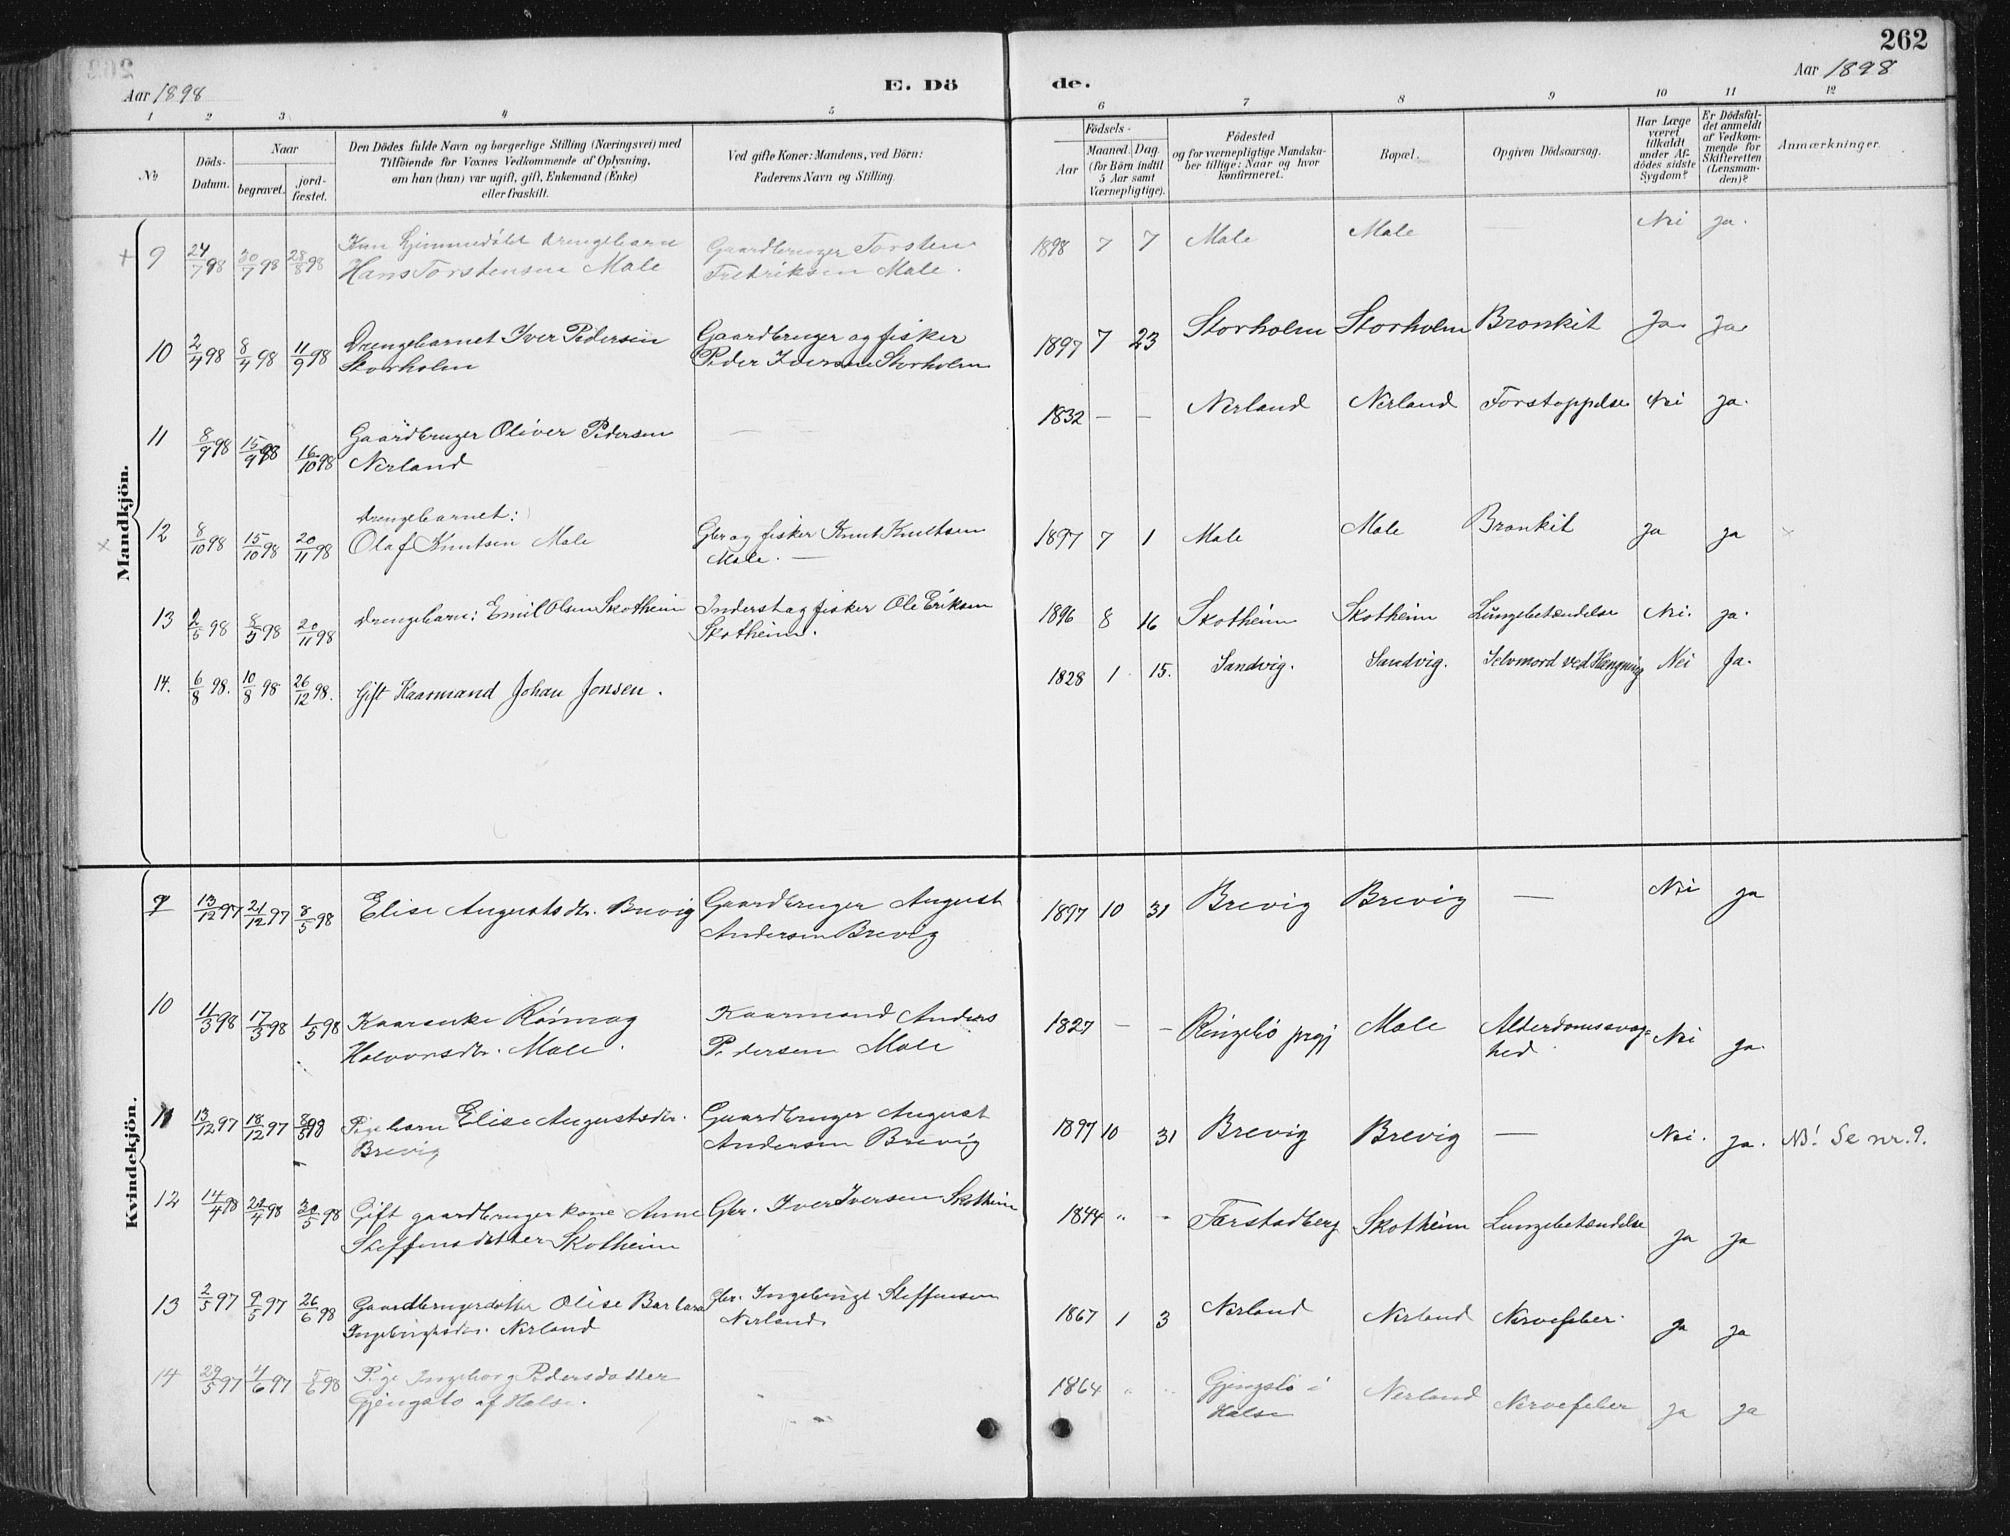 262
Aar 1898
E. Dö
de.
Aar 1898
1 2 3 4 5 6 7 8 9 10 11 12
No
Döds-
Datum.
Naar
begravet.
jord-
fæstet.
Den Dödes fulde Navn og borgerlige Stilling (Næringsvei) med
Tilföiende for Voxnes Vedkommende af Oplysning,
om han (hun) var ugift, gift, Enkemand (Enke)
eller fraskilt.
Ved gifte Koner: Mandens, ved Börn:
Faderens Navn og Stilling.
Födsels-
Aar
Maaned. Dag.
(for Börn indtil
5 Aar samt
Værnepligtige).
Födested
og for værnepligtige Mandska-
ber tillige: Naar og hvor
konfirmeret.
Bopæl.
Opgiven Dödsaarsag.
Har Læge
været
tilkaldt
under Af-
dödes sidste
Sygdom?
Er Dödsfal-
det anmeldt
af Vedkom-
mende for
Skifteretten
(Lensman-
den)?
Anmærkninger.
Mandkjön.
+ 9 24/7 98 30/7 98 28/8 98 Kun hjemmedöbt Drengebarn Gaardbruger Torsten 1898 7 7 Male Male — Nei Ja.
Hans Torstensen Male Fredriksen Male.
10 2/4 98 8/4 98 11/9 98 Drengebarnet Iver Pedersen Gaardbruger og fisker 1897 7 23 Storholm Storholm Bronkit Ja Ja
Storholm Peder Iversen Storholm
11 8/9 98 15/9 98 16/10 98 Gaardbruger Oliver Pedersen — 1832 — — Nerland Nerland Forstoppelse Nei Ja.
Nerland
Drengebarnet:
x 12 8/10 98 15/10 98 20/11 98 Olaf Knutsen Male Gbr og fisker Knut Knutsen 1897 7 1 Male Male Bronkit Ja Ja x
Male. —
13 2/5 98 8/5 98 20/11 98 Drengebarn: Emil Olsen Skotheim Inderst og fisker Ole Eriksen 1896 8 16 Skotheim Skotheim Lungebetændelse Nei. Ja.
Skotheim.
14. 6/8 98. 10/8 98 26/12 98. Gift Kaarmand Johan Jonsen. 1828 1 15. Sandvig. Sandvig. Selvmord ved Hængning Nei Ja.
Kvindekjön.
9 13/12 97 21/12 97 8/5 98 Elise Augustsdtr. Brevig Gaardbruger August 1897 10 31 Brevig Brevig — Nei Ja
Andersen Brevig
10 11/3 98 17/3 98 1/5 98 Kaarenke Rönnog Kaarmand Anders 1827 — — Ringebö prgj Male Alderdomssvag- Nei Ja.
Halvorsdtr. Male. Pedersen Male hed
11 13/12 97 18/12 97 8/5 98 Pigebarn Elise Augustsdtr. Gaardbruger August 1897 10 31 Brevig Brevig — Nei. Ja. NB! Se nr. 9.
Brevig Andersen Brevig
12 14/4 98 22/4 98 30/5 98 Gift gaardbrugerkone Anne Gbr. Iver Iversen Skotheim 1844 " - Farstadberg Skotheim Lungebetændelse Ja Ja
Steffensdatter Skotheim
13 2/5 97 9/5 97 26/6 98 Gaardbrugerdatter Olise Barbara Gbr. Ingebrigt Steffensen 1867 1 3 Nerland Nerland Nervefeber. Ja Ja
Ingebrigtsdtr. Nerland Nerland.
14 29/5 97 4/6 97 5/6 98 Pige Ingeborg Pedersdatter 1864 " " Gjengstö i Nerland Nervefeber Ja Ja
Gjengstö af Halse. Halse